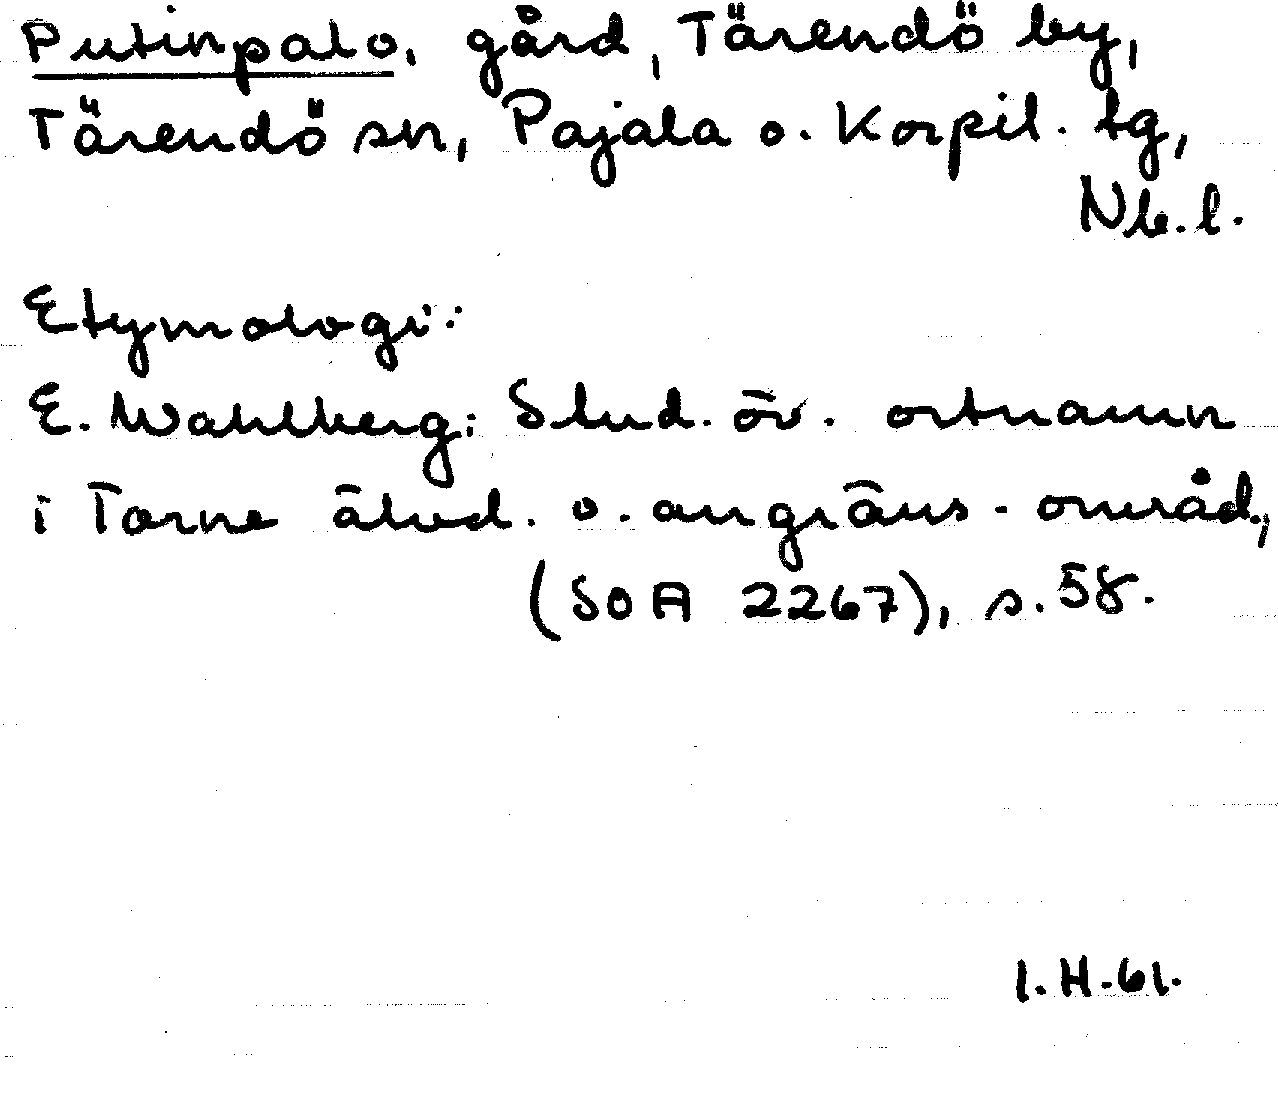 Putinpalo, gård, Tärendö by,
Tärendö sn, Pajala o. Korpil. tg,
Nb.l.
Etymologi:
E. Wahlberg: Stud. öv. ortnamn
i Torne älvd. o. angräns. områd.,
(SOA 2267), s. 58.
I.H.61.